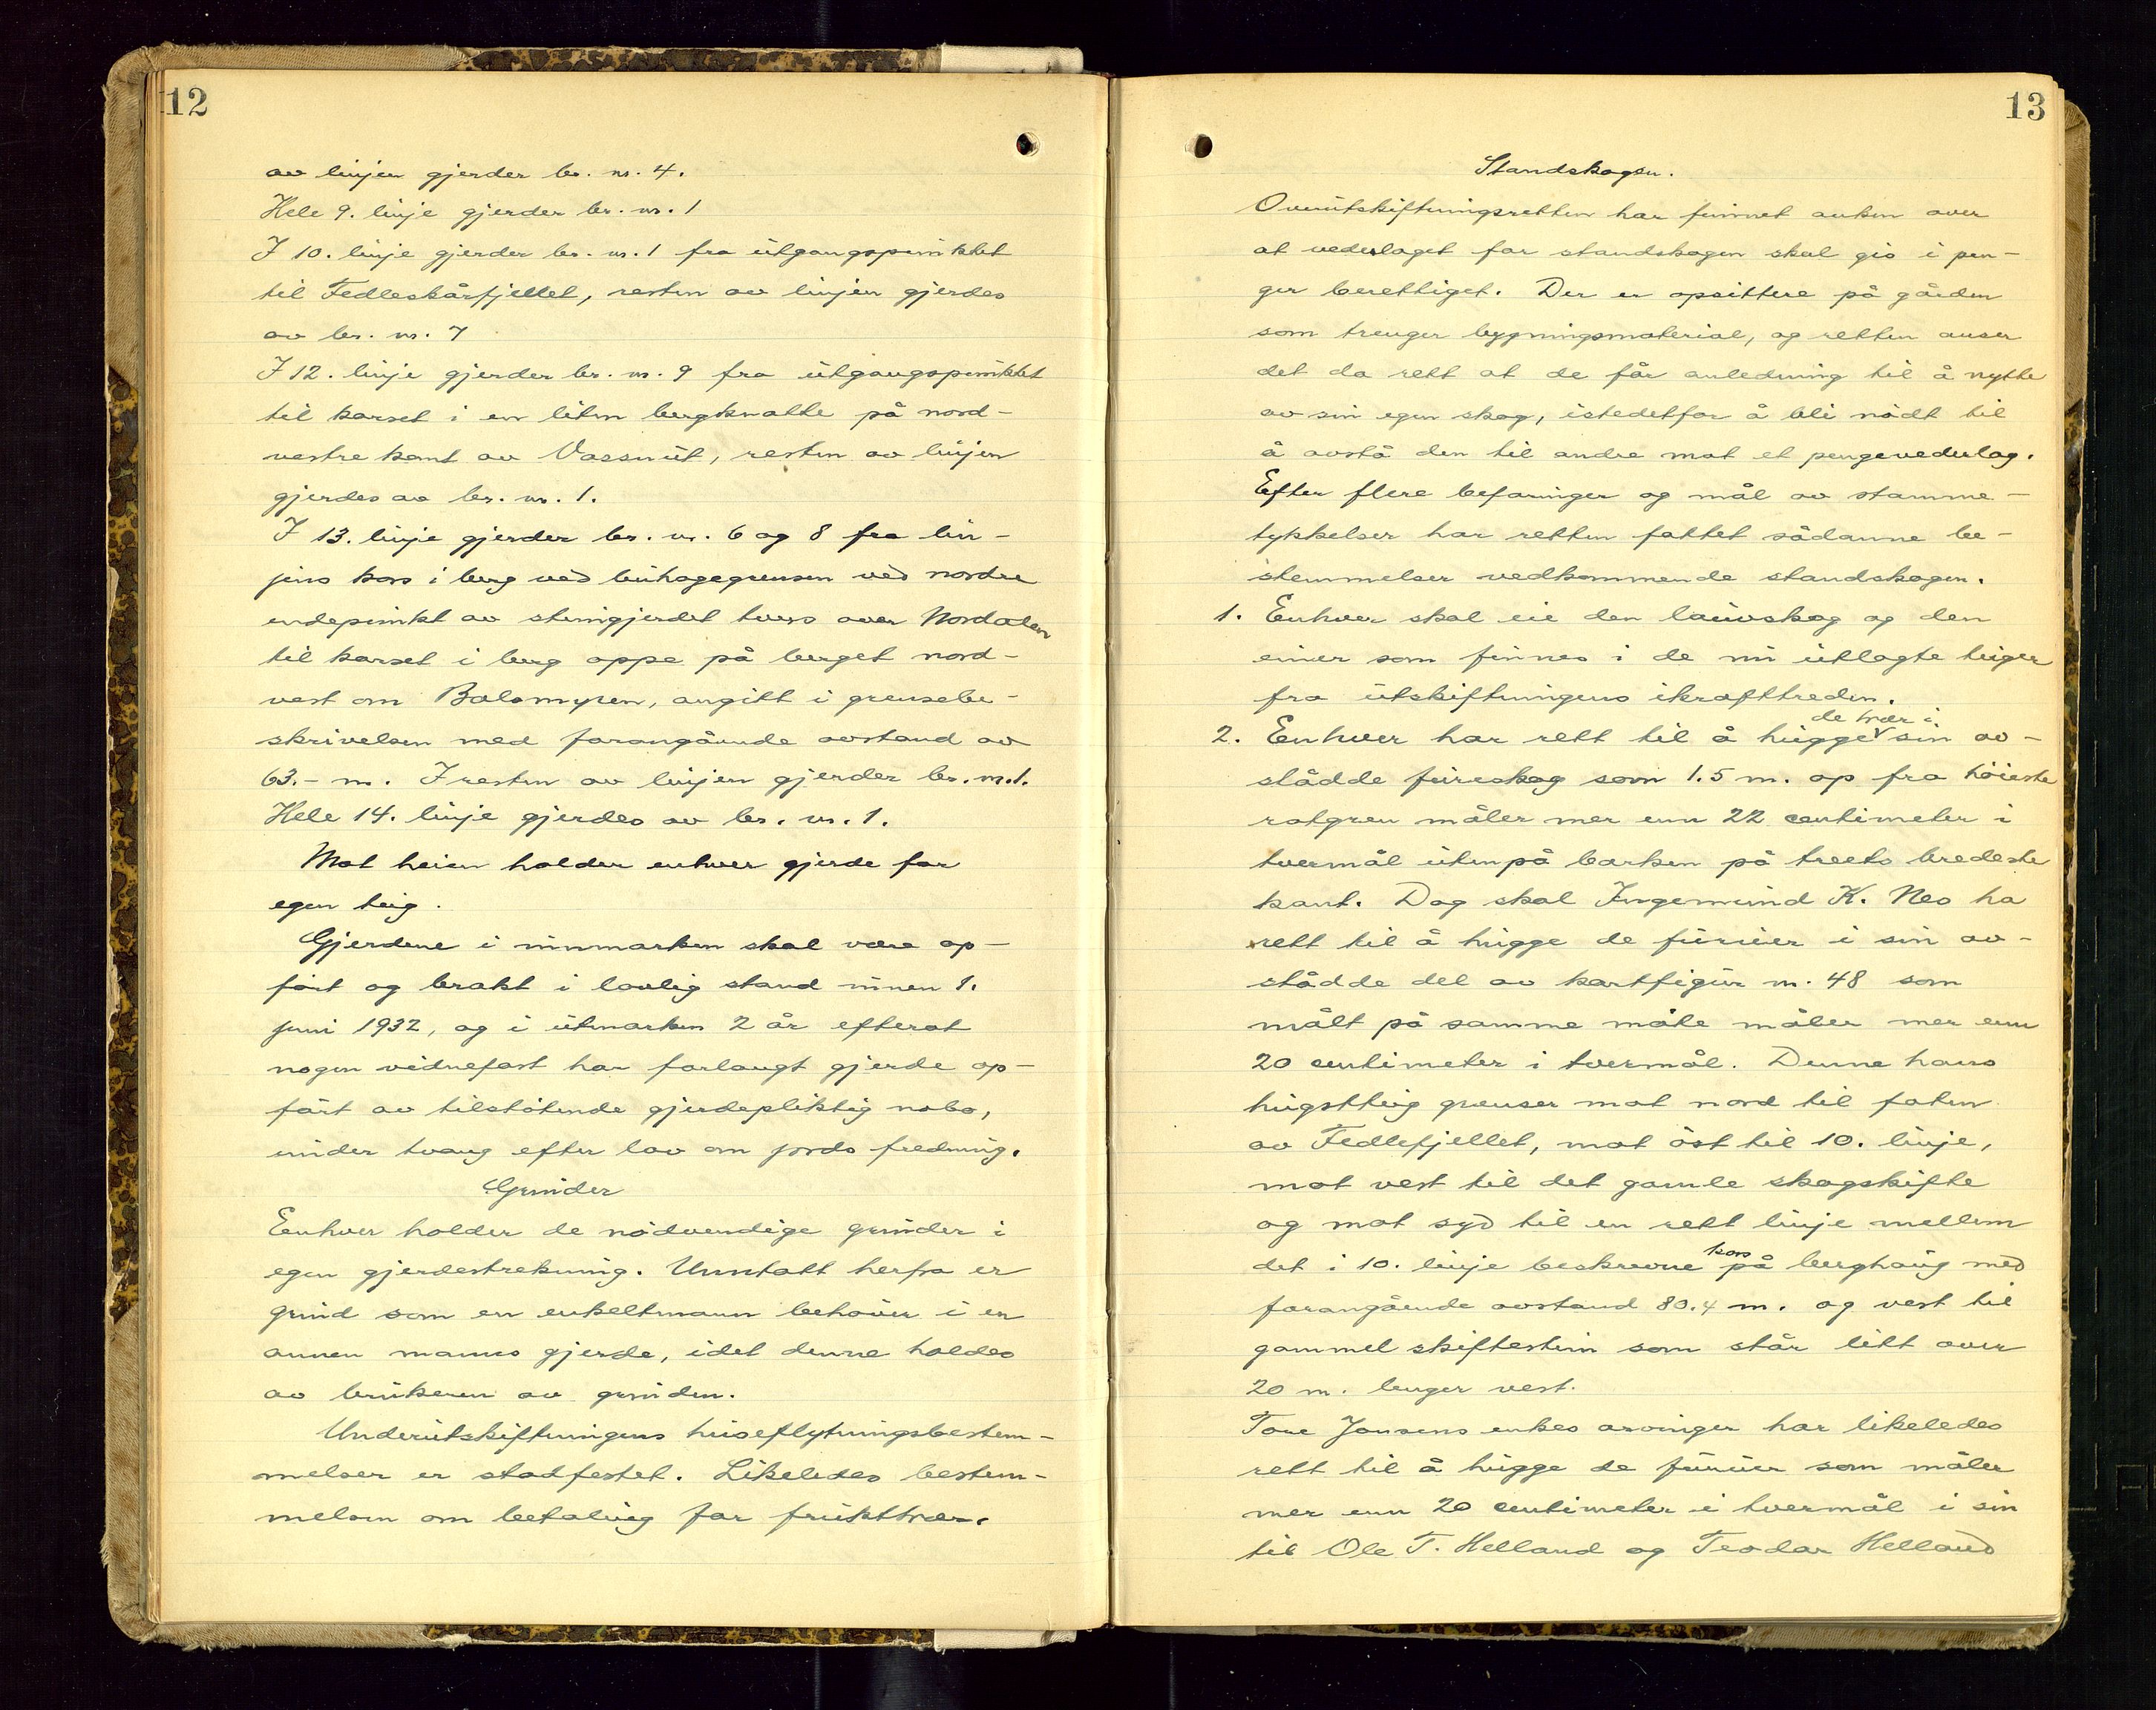 12
av linjen gjerder br. nr. 4.
Hele 9. linje gjerder br. nr. 1
I 10. linje gjerder br. nr. 1 fra utgangspunktet
til Fedleskårfjellet, resten av linjen gjerdes
av br. nr. 7
I 12. linje gjerder br. nr. 9 fra utgangspunktet
til korset i en liten bergknatte på nord-
vestre kant av Vassnut, resten av linjen
gjerdes av br. nr. 1.
I 13. linje gjerder br. nr. 6 og 8 fra lin-
jens kors i berg ved buhagegrensen ved nordre
endepunkt av stengjerdet tvers over Nordalen
til korset i berg oppe på berget nord-
vest om Balsmyren, angitt i grensebe-
skrivelsen med forangående avstand av
63.- m. I resten av linjen gjerder br. nr. 1.
Hele 14. linje gjerdes av br. nr. 1.
Mot heien holder enhver gjerde for
egen teig.
Gjerdene i innmarken skal være op-
ført og brakt i lovlig stand innen 1.
juni 1932, og i utmarken 2 år efterat
nogen vidnefast har forlangt gjerde op-
ført av tilstøtende gjerdepliktig nabo,
under tvang efter lov om jords fredning.
Grinder
Eenhver holder de nødvendige grinder i
egen gjerdestrekning. Unntatt herfra er
grind som en enkeltmann behøver i en
annen manns gjerde, idet denne holdes
av brukeren av grinden.
Underutskiftningens huseflytningsbestem-
melser er stadfestet. Likeledes bestem-
melsen om betaling for frukttrær.
13
Standskogen.
Overutskiftningsretten har funnet anken over
at vederlaget for standskogen skal gis i pen-
ger berettiget. Der er opsittere på gården
som trenger bygningsmaterial, og retten anser
det da rett at de får anledning til å nytte
av sin egen skog, istedetfor å bli nødt til
å avstå den til andre mot et pengevederlag.
Eefter flere befaringer og mål av stamme-
tykkelser har retten fattet sådanne be-
stemmelser vedkommende standskogen.
1. Eenhver skal eie den lauvskog og den
einer som finnes i de nu utlagte teiger
fra utskiftningens ikrafttreden.
de trær i
2. Eenhver har rett til å hugge sin av-
stådde fureskog som 1.5 m. op fra høieste
rotgren måler mer enn 22 centimeter i
tvermål utenpå barken på treets bredeste
kant. Dog skal Ingemund K. Nes ha
rett til å hugge de furuer i sin av-
stådde del av kartfigur nr. 48 som
målt på samme måte måler mer enn
20 centimeter i tvermål. Denne hans
hugstteig grenser mot nord til foten
av Fedlefjellet, mot øst til 10. linje,
mot vest til det gamle skogskifte
og mot syd til en rett linje mellem
kors
det i 10. linje beskrevne på berghaug med
forangående avstand 80.4 m. og vest til
gammel skiftestein som står litt over
20 m. lenger vest.
Tore Jonsens enkes arvinger har likeledes
rett til å hugge de furuer som måler
mer enn 20 centimeter i tvermål i sin
til Ole T. Helland og Teodor Helland